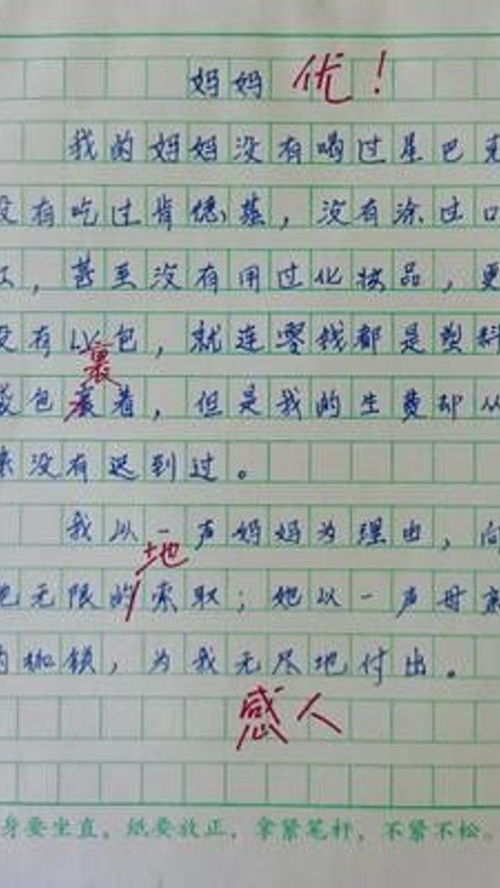 妈妈 优！
我的妈妈没有喝过星巴克
没有吃过肯德基，没有涂过口
红，甚至没有用过化妆品，更
没有LV包，就连零钱都是塑料
裹
袋包裹着，但是我的生费却从
来没有迟到过。
我以一声妈妈为理由，向
地
她无限的索取；她以一声母亲
的枷锁，为我无尽地付出。
感人
身要坐直，纸要放正，拿紧笔杆，不紧不松。